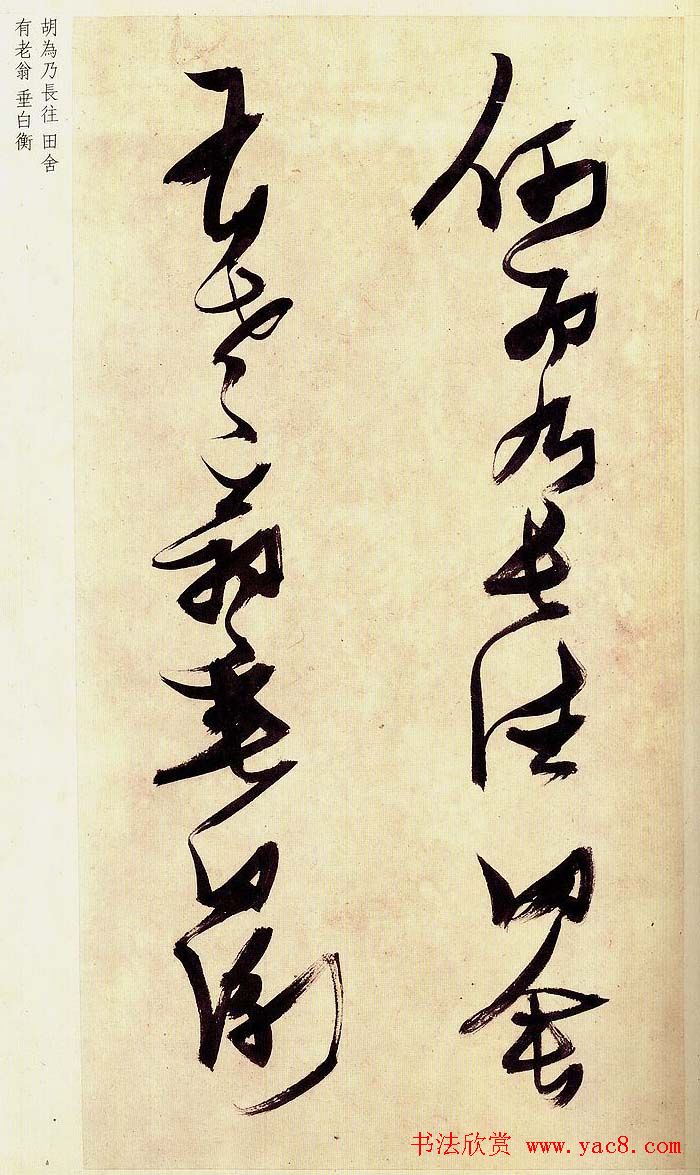 何為乃長往田舍
有老翁垂白衡
胡為乃長往 田舍
有老翁 垂白衡
书法欣赏 www.yac8.com